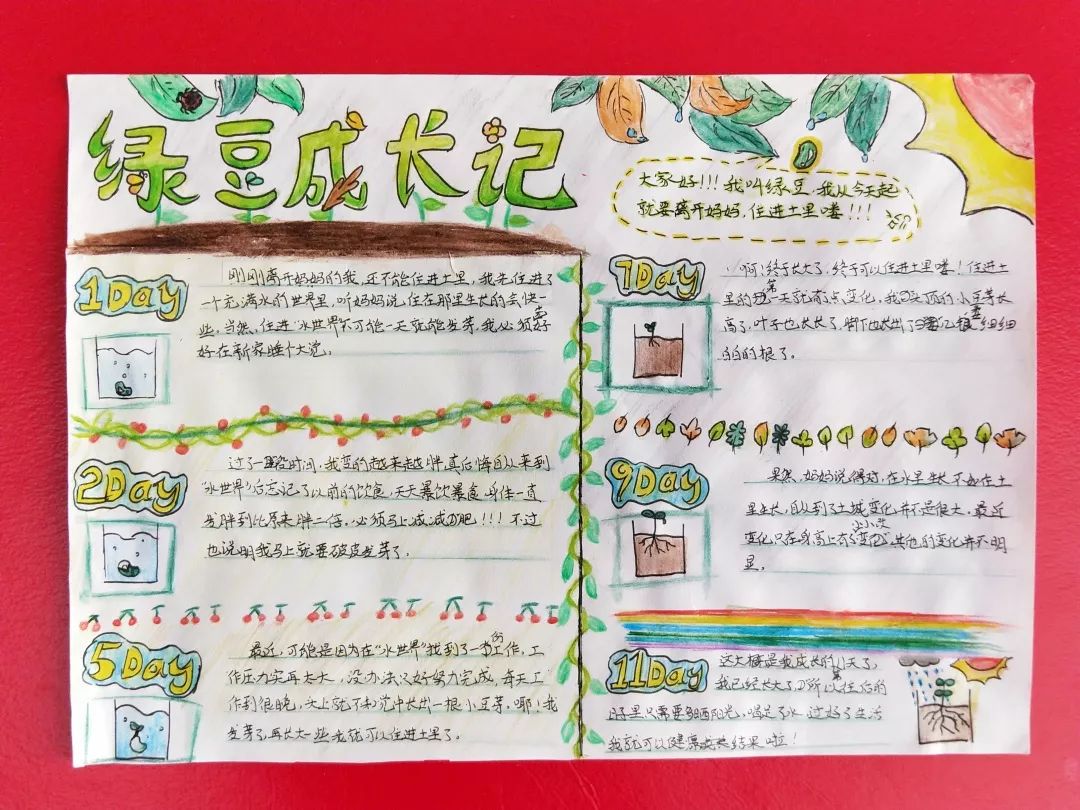 绿豆成长记
大家好!!!我叫绿豆,我从今天起
就要离开妈妈,住进土里喽!!!
1Day
刚刚离开妈妈的我,还不能住进土里,我先住进了
一个充满水的世界里,听妈妈说,住在那里生长的会快一
些,当然,住进“水世界”不可能一天就能发芽,我必须要好
好在新家睡个大觉。
2Day
过了一段时间,我变的越来越胖,真后悔自从来到
“水世界”后忘记了以前的饮食,天天暴饮暴食,身体一直
发胖到比原来胖二倍,必须马上减肥!!!不过
也说明我马上就要破皮发芽了。
5Day
最近,可能是因为在“水世界”找到了一份工作,工
作压力实再太大,没办法只好努力完成,每天工
作到很晚,头上就不知觉中长出一根小豆芽,耶!我
发芽了,再长大一些我就可以住进土里了。
7Day
啊!终于长大了,终于可以住进土里喽!住进土
里的第一天就有点变化,我头顶的小豆芽长
高了,叶子也长大了,脚下也长出了细细
白白的根了。
9Day
果然,妈妈说得对,在水里生长不如在土
里生长,自从到了土城变化并不是很大,最近
变化只在身高上有小小变化,其他的变化并不明
显。
11Day
这大概是我成长的第11天了,
我已经长大了,所以往后的
日子里只需要多晒阳光,喝足了水,过好了生活
我就可以健康成长结果啦!